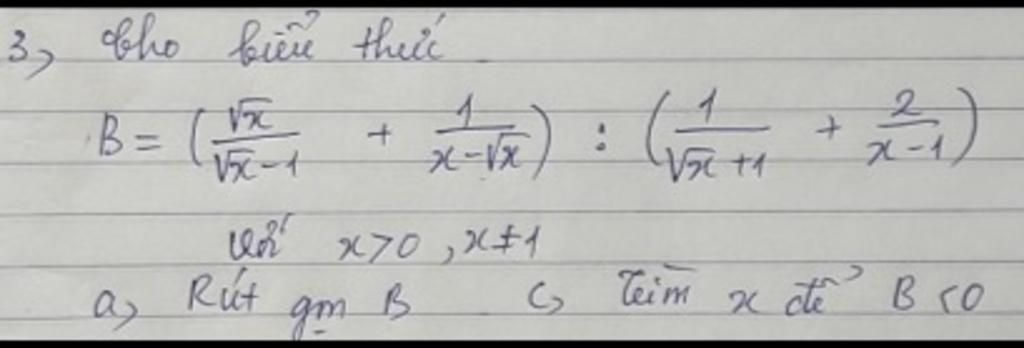 3, Cho biểu thức
B = (√x/(√x-1) + 1/(x-√x)) : (1/(√x+1) + 2/(x-1))
với x>0, x≠1
a, Rút gọn B c, Tìm x để B<0